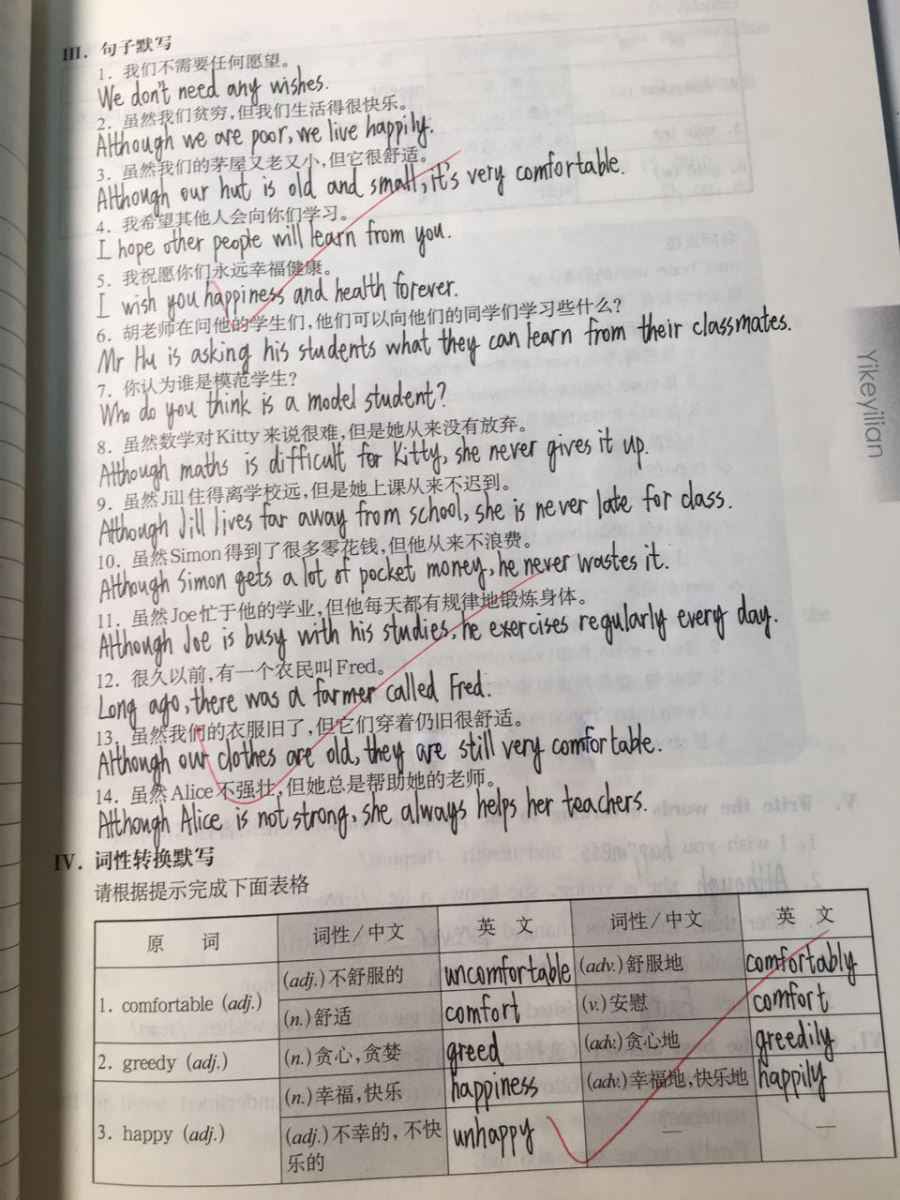 III. 句子默写
1. 我们不需要任何愿望。
We don't need any wishes.
2. 虽然我们贫穷,但我们生活得很快乐。
Although we are poor, we live happily.
3. 虽然我们的茅屋又老又小,但它很舒适。
Although our hut is old and small, it's very comfortable.
4. 我希望其他人会向你们学习。
I hope other people will learn from you.
5. 我祝愿你们永远幸福健康。
I wish you happiness and health forever.
6. 胡老师在问他的学生们,他们可以向他们的同学们学习些什么?
Mr Hu is asking his students what they can learn from their classmates.
7. 你认为谁是模范学生?
Who do you think is a model student?
8. 虽然数学对Kitty来说很难,但是她从来没有放弃。
Although maths is difficult for Kitty, she never gives it up.
9. 虽然Jill住得离学校远,但是她上课从来不迟到。
Although Jill lives far away from school, she is never late for class.
10. 虽然Simon得到了很多零花钱,但他从来不浪费。
Although Simon gets a lot of pocket money, he never wastes it.
11. 虽然Joe忙于他的学业,但他每天都有规律地锻炼身体。
Although Joe is busy with his studies, he exercises regularly every day.
12. 很久以前,有一个农民叫Fred.
Long ago, there was a farmer called Fred.
13. 虽然我们的衣服旧了,但它们穿着仍旧很舒适。
Although our clothes are old, they are still very comfortable.
14. 虽然Alice不强壮,但她总是帮助她的老师。
Although Alice is not strong, she always helps her teachers.
IV. 词性转换默写
请根据提示完成下面表格
原 词 词性/中文 英 文 词性/中文 英 文
1. comfortable (adj.) (adj.)不舒服的 uncomfortable (adv.)舒服地 comfortably
(n.)舒适 comfort (v.)安慰 comfort
2. greedy (adj.) (n.)贪心,贪婪 greed (adv.)贪心地 greedily
3. happy (adj.) (n.)幸福,快乐 happiness (adv.)幸福地,快乐地 happily
(adj.)不幸的,不快乐的 unhappy — —
Yikeyilian